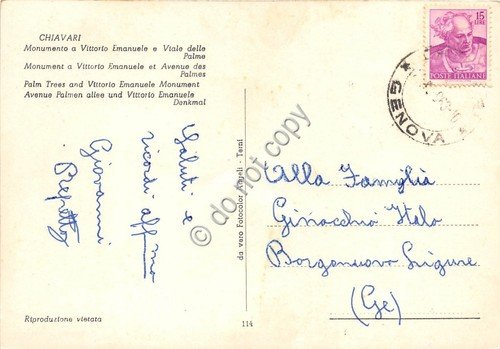 CHIAVARI
Monumento a Vittorio Emanuele e Viale delle
Palme
Monument a Vittorio Emanuele et Avenue des
Palmes
Palm Trees and Vittorio Emanuele Monument
Avenue Palmen allee und Vittorio Emanuele
Denkmal
Saluti e
ricordi aff/mo
Giovanni
Riproduzione vietata
da vero Fotocolor Angeli - Terni
114
15
LIRE
POSTE ITALIANE
GENOVA
Alla Famiglia
Ginocchio Italo
Borgonuovo Ligure
(Ge)
© do not copy